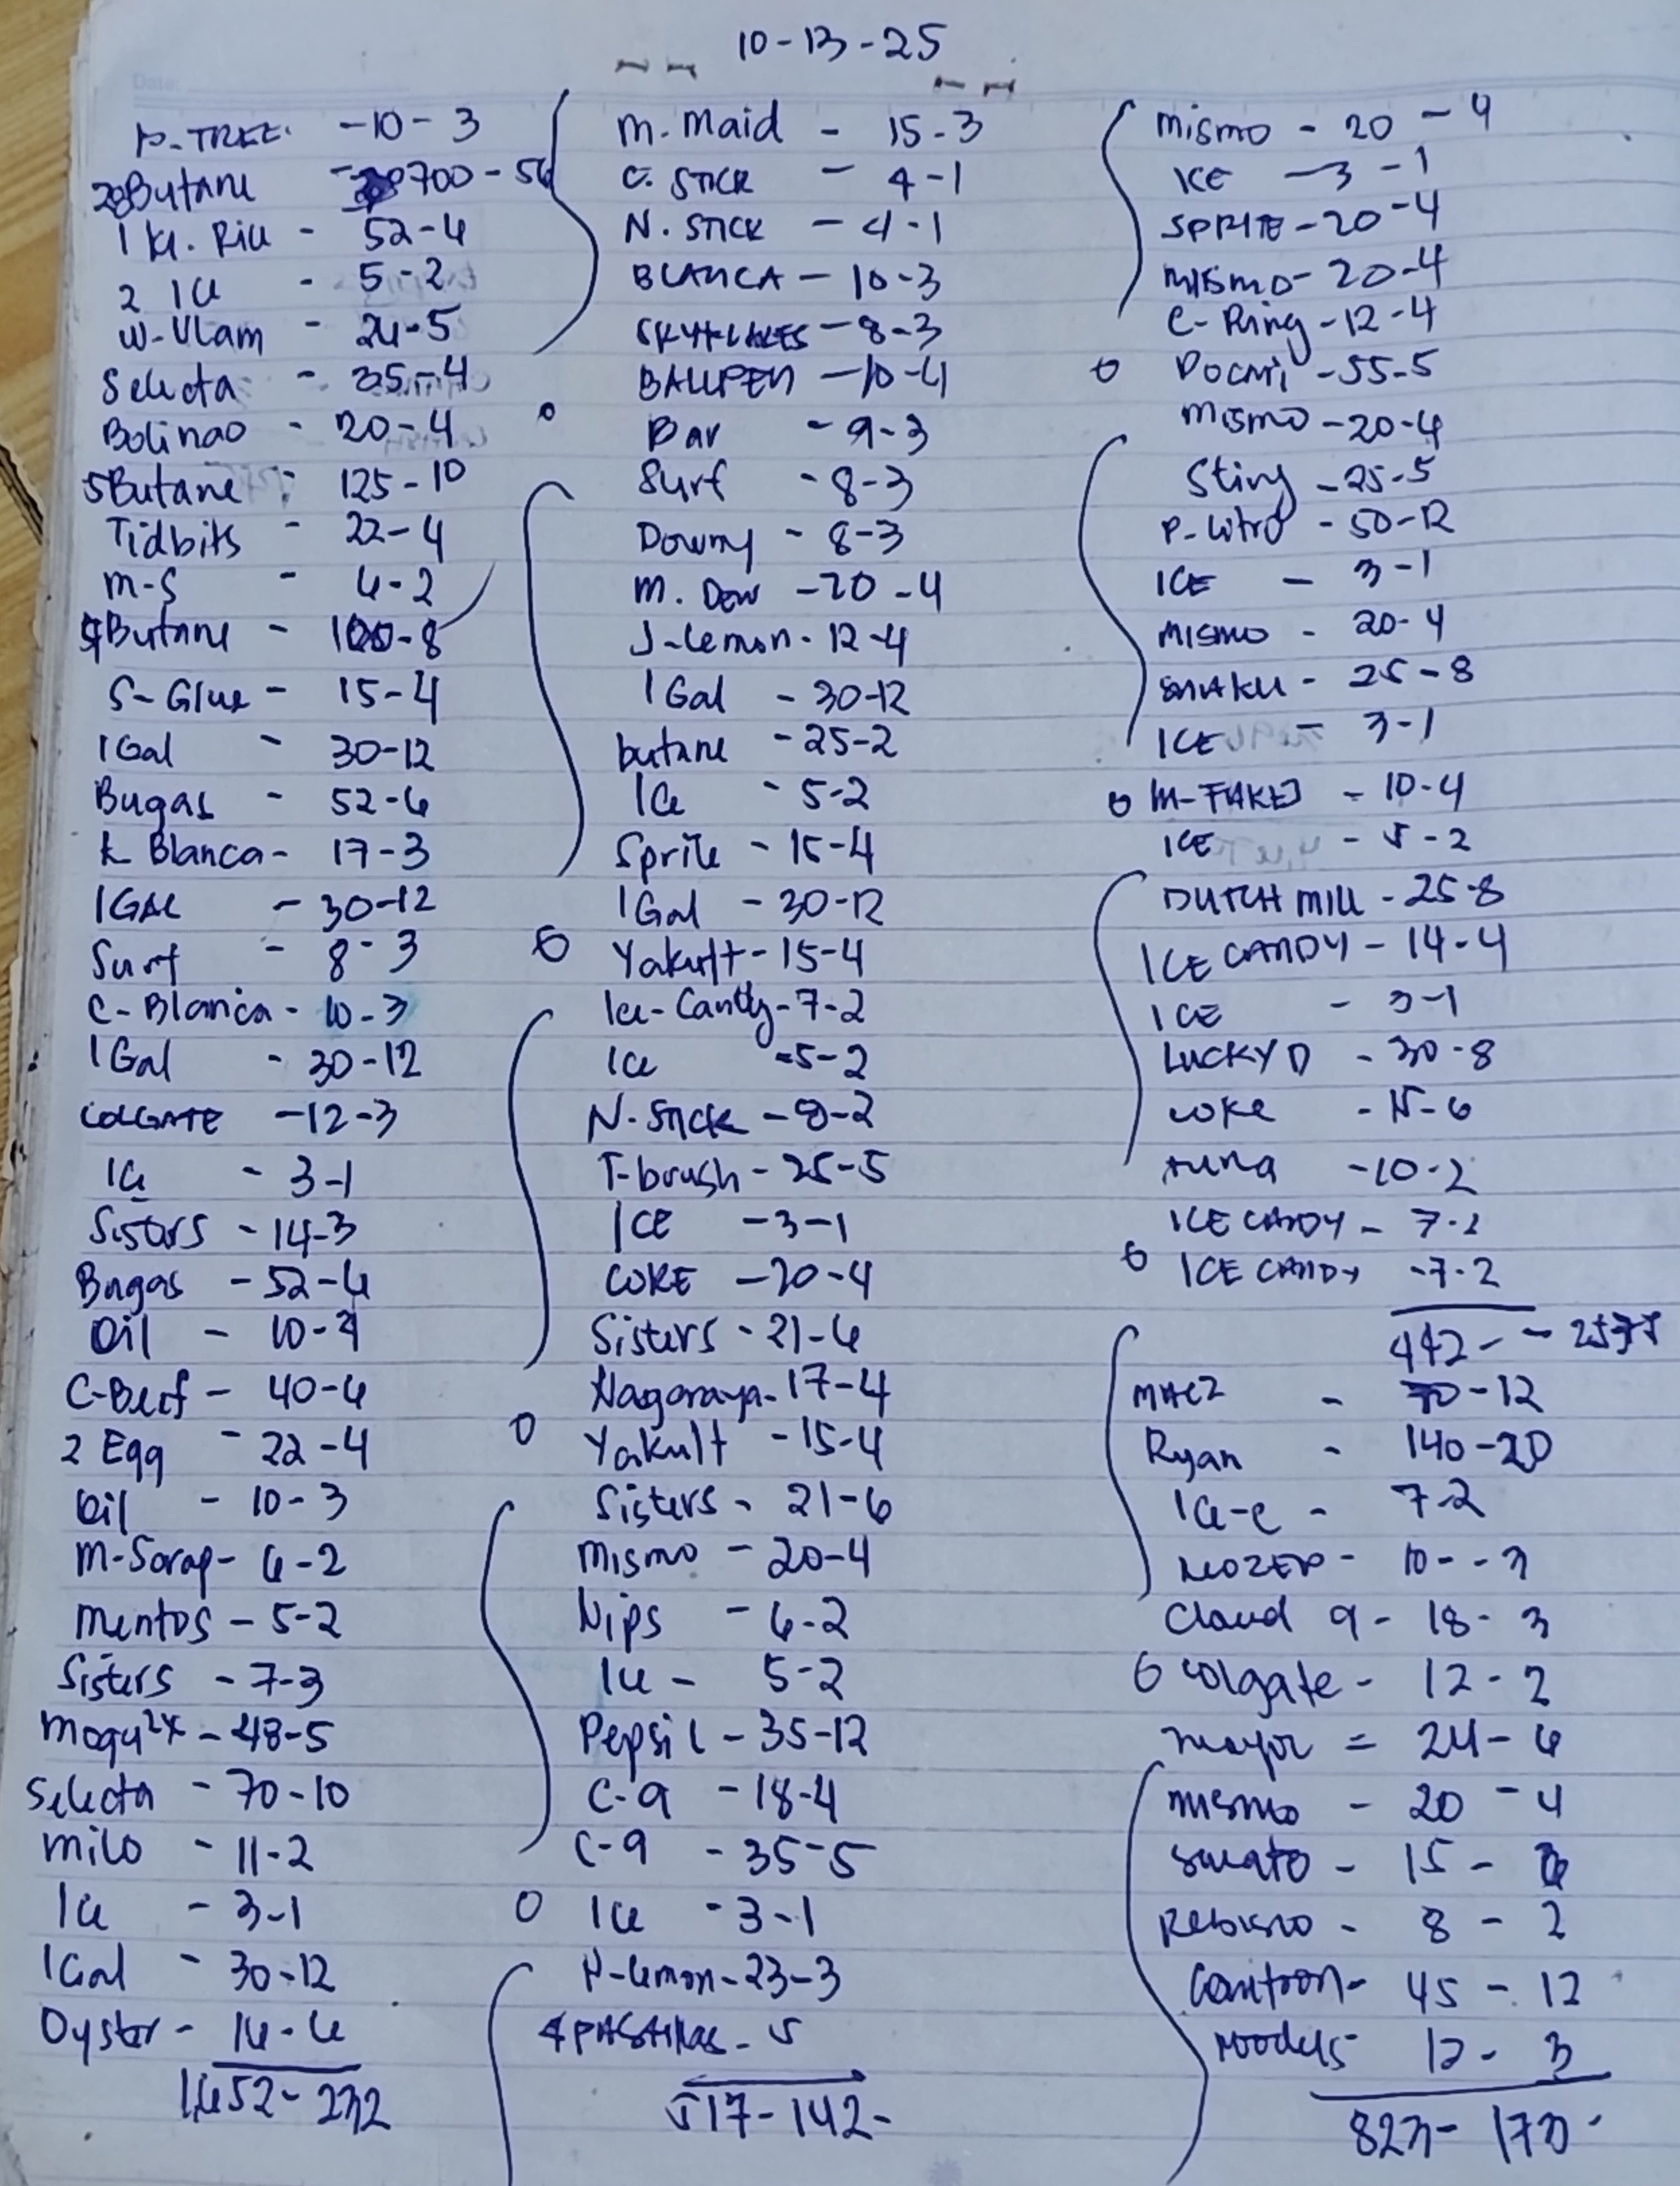 10-13-25
P-TREE. -10-3
28Butane - 700-56
1 kl. Rice - 52-6
2 Ice - 5-2
W-Ulam - 24-5
Selecta - 35-4
Bolinao - 20-4
5Butane - 125-10
Tidbits - 22-4
M-S - 6-2
4Butane - 100-8
S-Glue - 15-4
1Gal - 30-12
Bugas - 52-6
K Blanca - 17-3
1GAL - 30-12
Surf - 8-3
C-Blanca - 10-3
1Gal - 30-12
COLGATE -12-3
Ice - 3-1
Sisters - 14-3
Bugas - 52-6
Oil - 10-3
C-Beef - 40-6
2 Egg - 22-4
Oil - 10-3
M-Sarap - 6-2
Mentos - 5-2
Sisters - 7-3
Mogu2x - 48-5
Selecta - 70-10
Milo - 11-2
Ice - 3-1
1Gal - 30-12
Oyster - 16-6
1,652- 232
M. Maid - 15-3
C. STICK - 4-1
N. STICK - 4-1
BLANCA - 10-3
SKYFLAKES - 8-3
BALLPEN - 10-4
Bar - 9-3
Surf - 8-3
Downy - 8-3
M. Dew - 20-4
J-Lemon - 12-4
1Gal - 30-12
butane - 25-2
Ice - 5-2
Sprite - 15-4
1Gal - 30-12
Yakult - 15-4
Ice-Candy - 7-2
Ice - 5-2
N. Stick - 8-2
T-brush - 25-5
ICE - 3-1
COKE - 20-4
Sisters - 21-6
Nagaraya - 17-4
Yakult - 15-4
Sisters - 21-6
Mismo - 20-4
Nips - 6-2
Ice - 5-2
Pepsi L - 35-12
C-9 - 18-4
C-9 - 35-5
Ice - 3-1
H-Lemon - 23-3
4 PASTILLAS - 5
517- 142-
Mismo - 20-4
ICE - 3-1
SPRITE - 20-4
Mismo - 20-4
C-Ring - 12-4
Pocari - 55-5
Mismo - 20-4
Sting - 25-5
P-Litro - 50-12
ICE - 3-1
Mismo - 20-4
SNAKU - 25-8
ICE - 3-1
10-4
ICE - 5-2
DUTCH MILL - 25-8
ICE CANDY - 14-4
ICE - 3-1
LUCKY D - 30-8
Coke - 15-6
Tuna - 10-2
ICE CANDY - 7-2
ICE CANDY - 7-2
442-
70-12
Ryan - 140-20
Ice-C - 7-2
NEOZEP - 10--3
Cloud 9 - 18-3
Colgate - 12-2
Mayor = 24-6
Mismo - 20-4
15 -
Rebisco - 8-2
Cantoon - 45-12
Noodels - 12-3
823- 173-